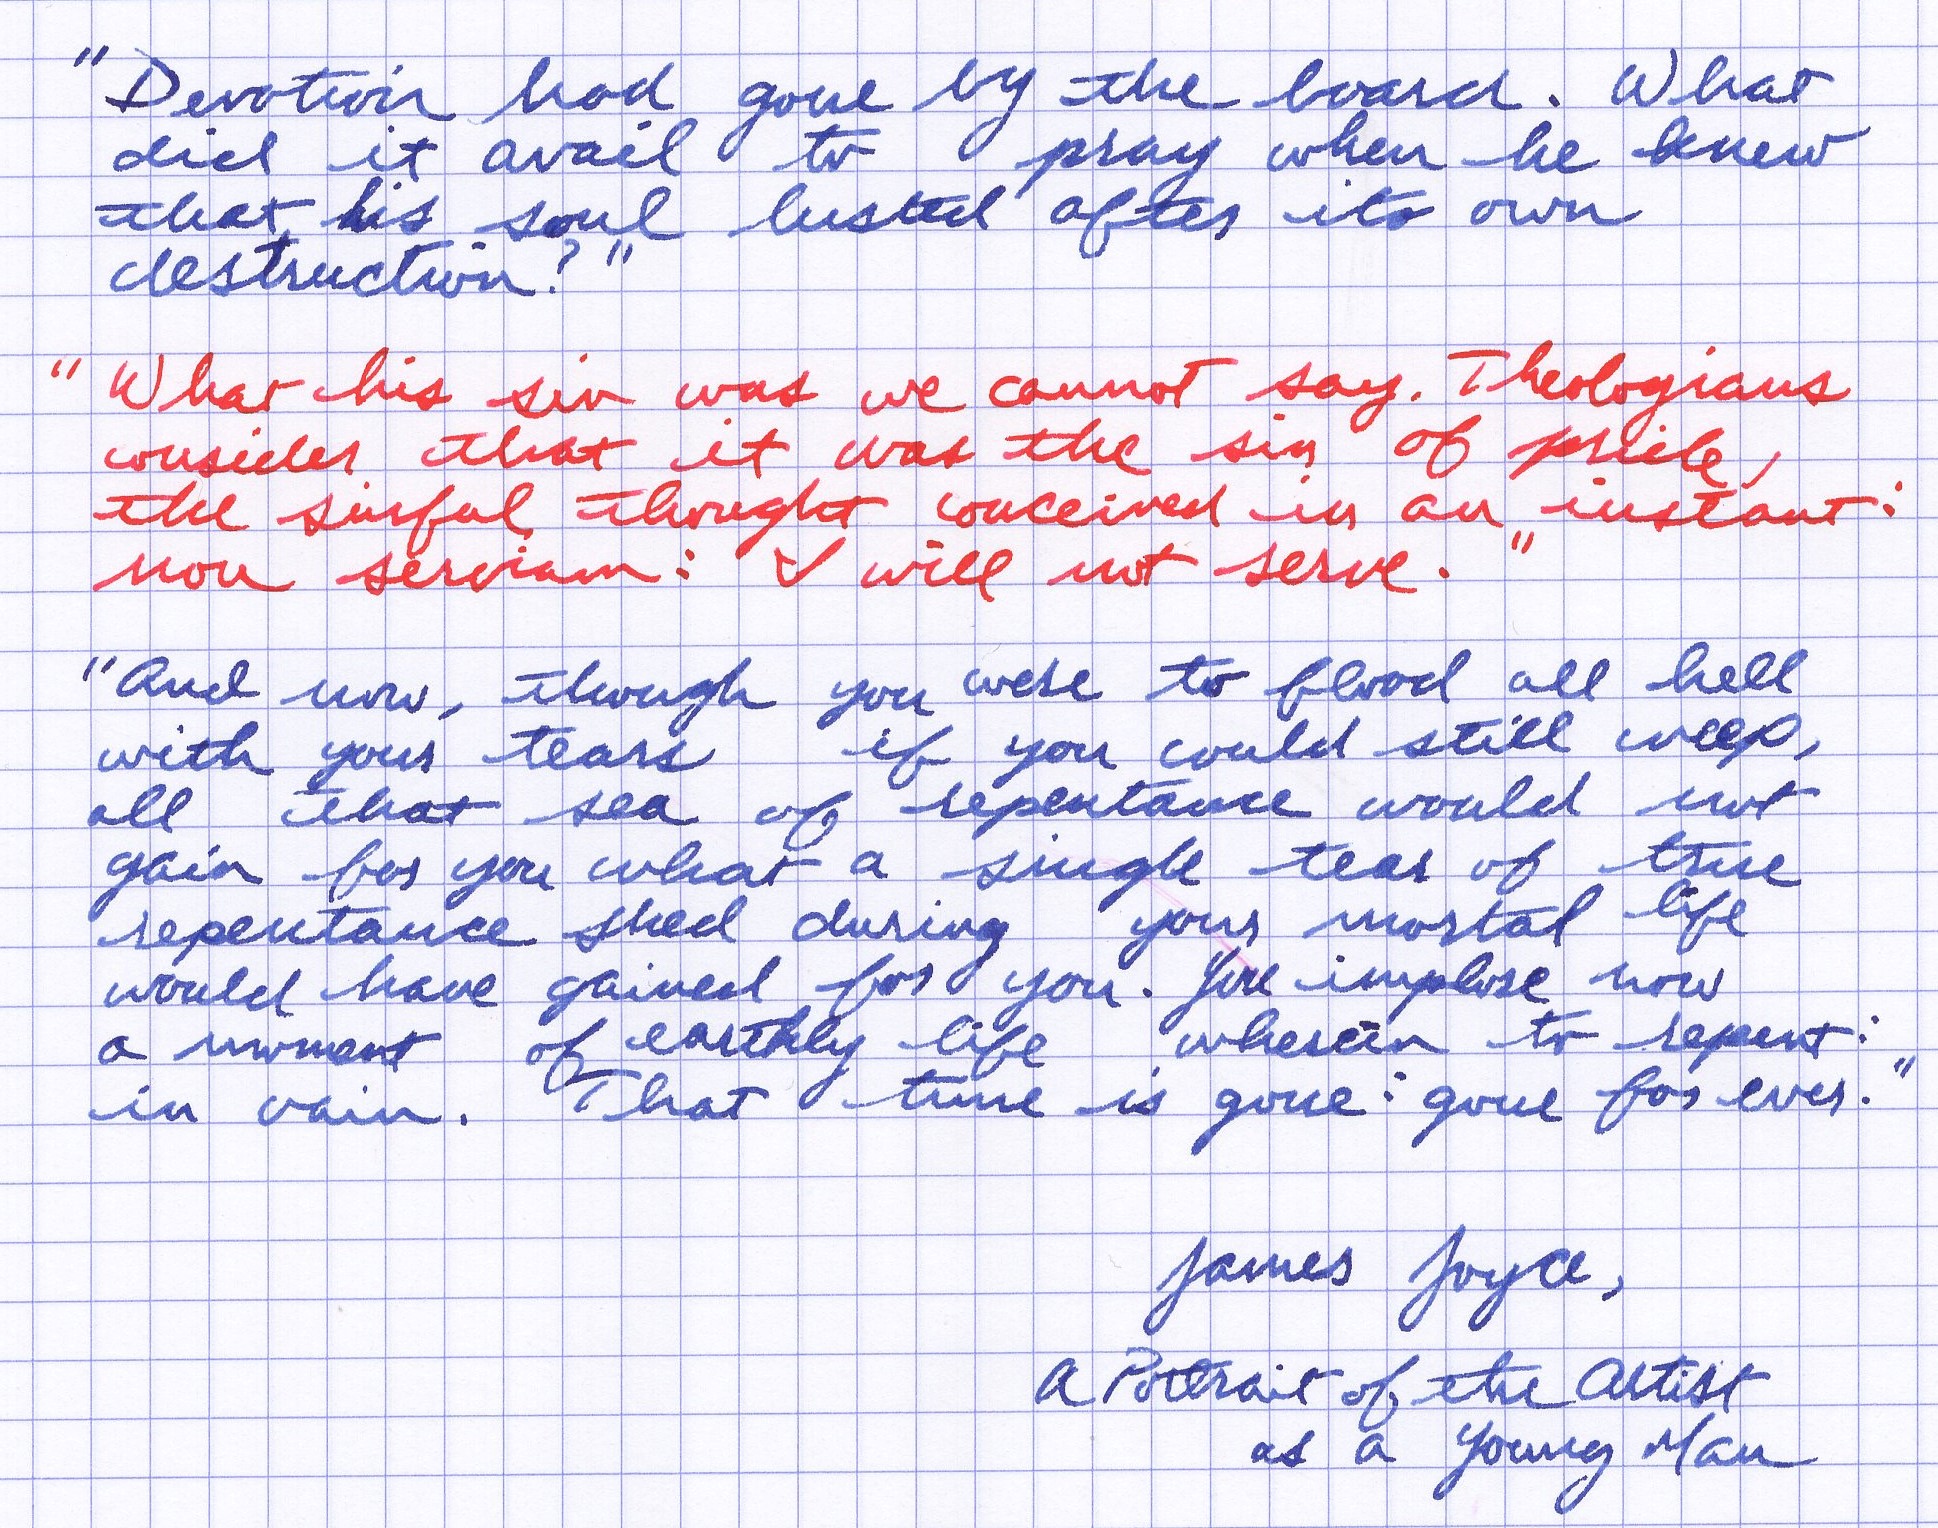 "Devotion had gone by the board. What
did it avail to pray when he knew
that his soul lusted after its own
destruction?"
"What his sin was we cannot say. Theologians
consider that it was the sin of pride,
the sinful thought conceived in an instant:
non serviam: I will not serve."
"And now, though you were to flood all hell
with your tears if you could still weep,
all that sea of repentance would not
gain for you what a single tear of true
repentance shed during your mortal life
would have gained for you. You implore now
a moment of earthly life wherein to repent:
in vain. That time is gone: gone for ever."
James Joyce,
A Portrait of the Artist
as a Young Man